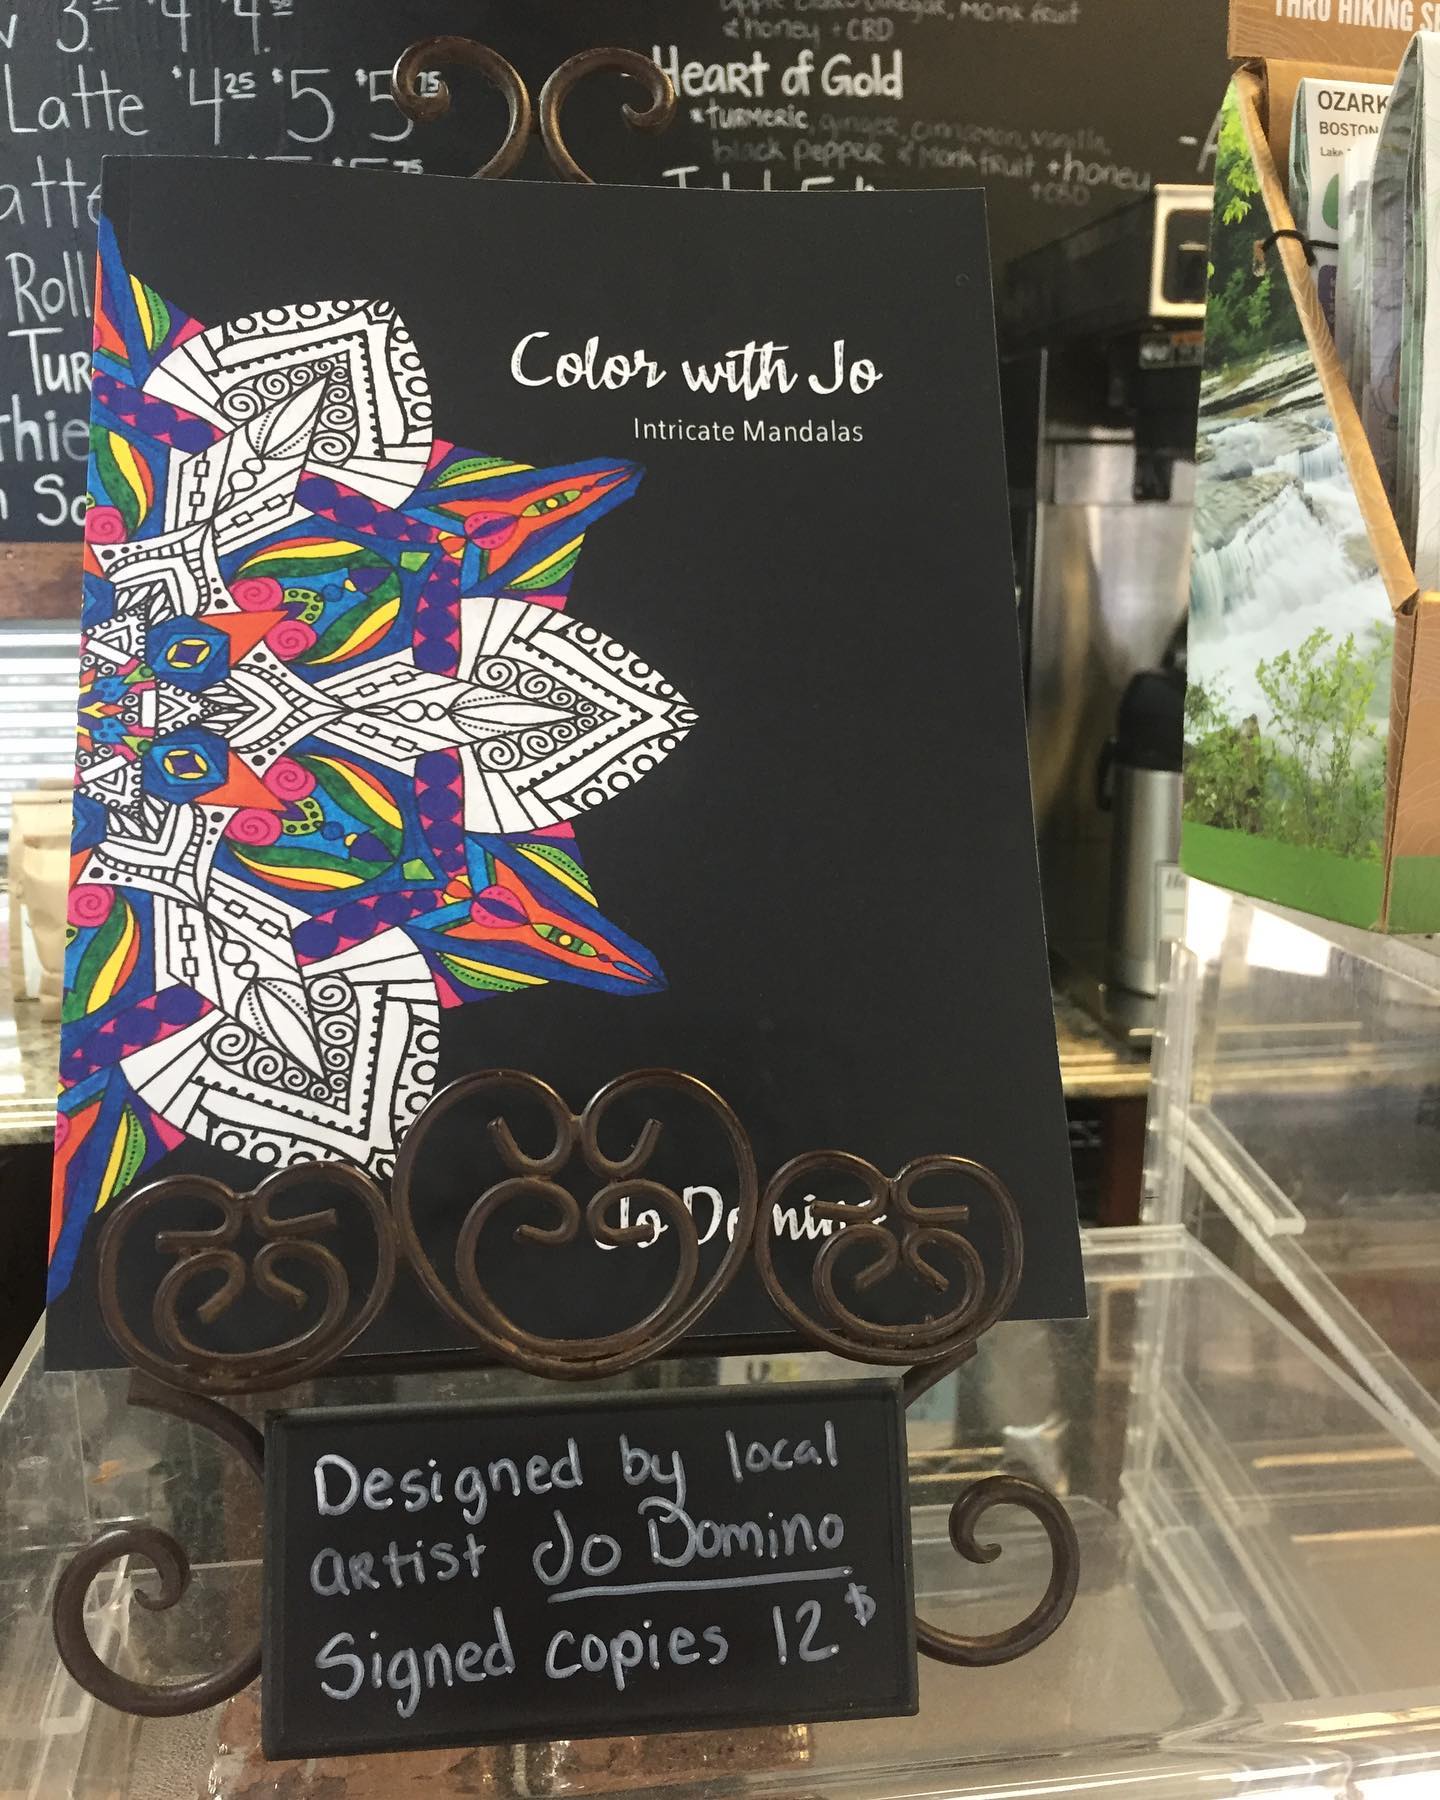 3. 4 4.50
Latte $4.25 $5 $5.75
Roll
Tur
thie
apple cider vinegar, monk fruit
& honey + CBD
Heart of Gold
*turmeric, ginger, cinnamon, vanilla,
black pepper & Monk fruit + honey
+CBD
THRU HIKING
OZARK
BOSTON
Lake
Color with Jo
Intricate Mandalas
Jo Domino
Designed by local
artist Jo Domino
Signed copies 12.$